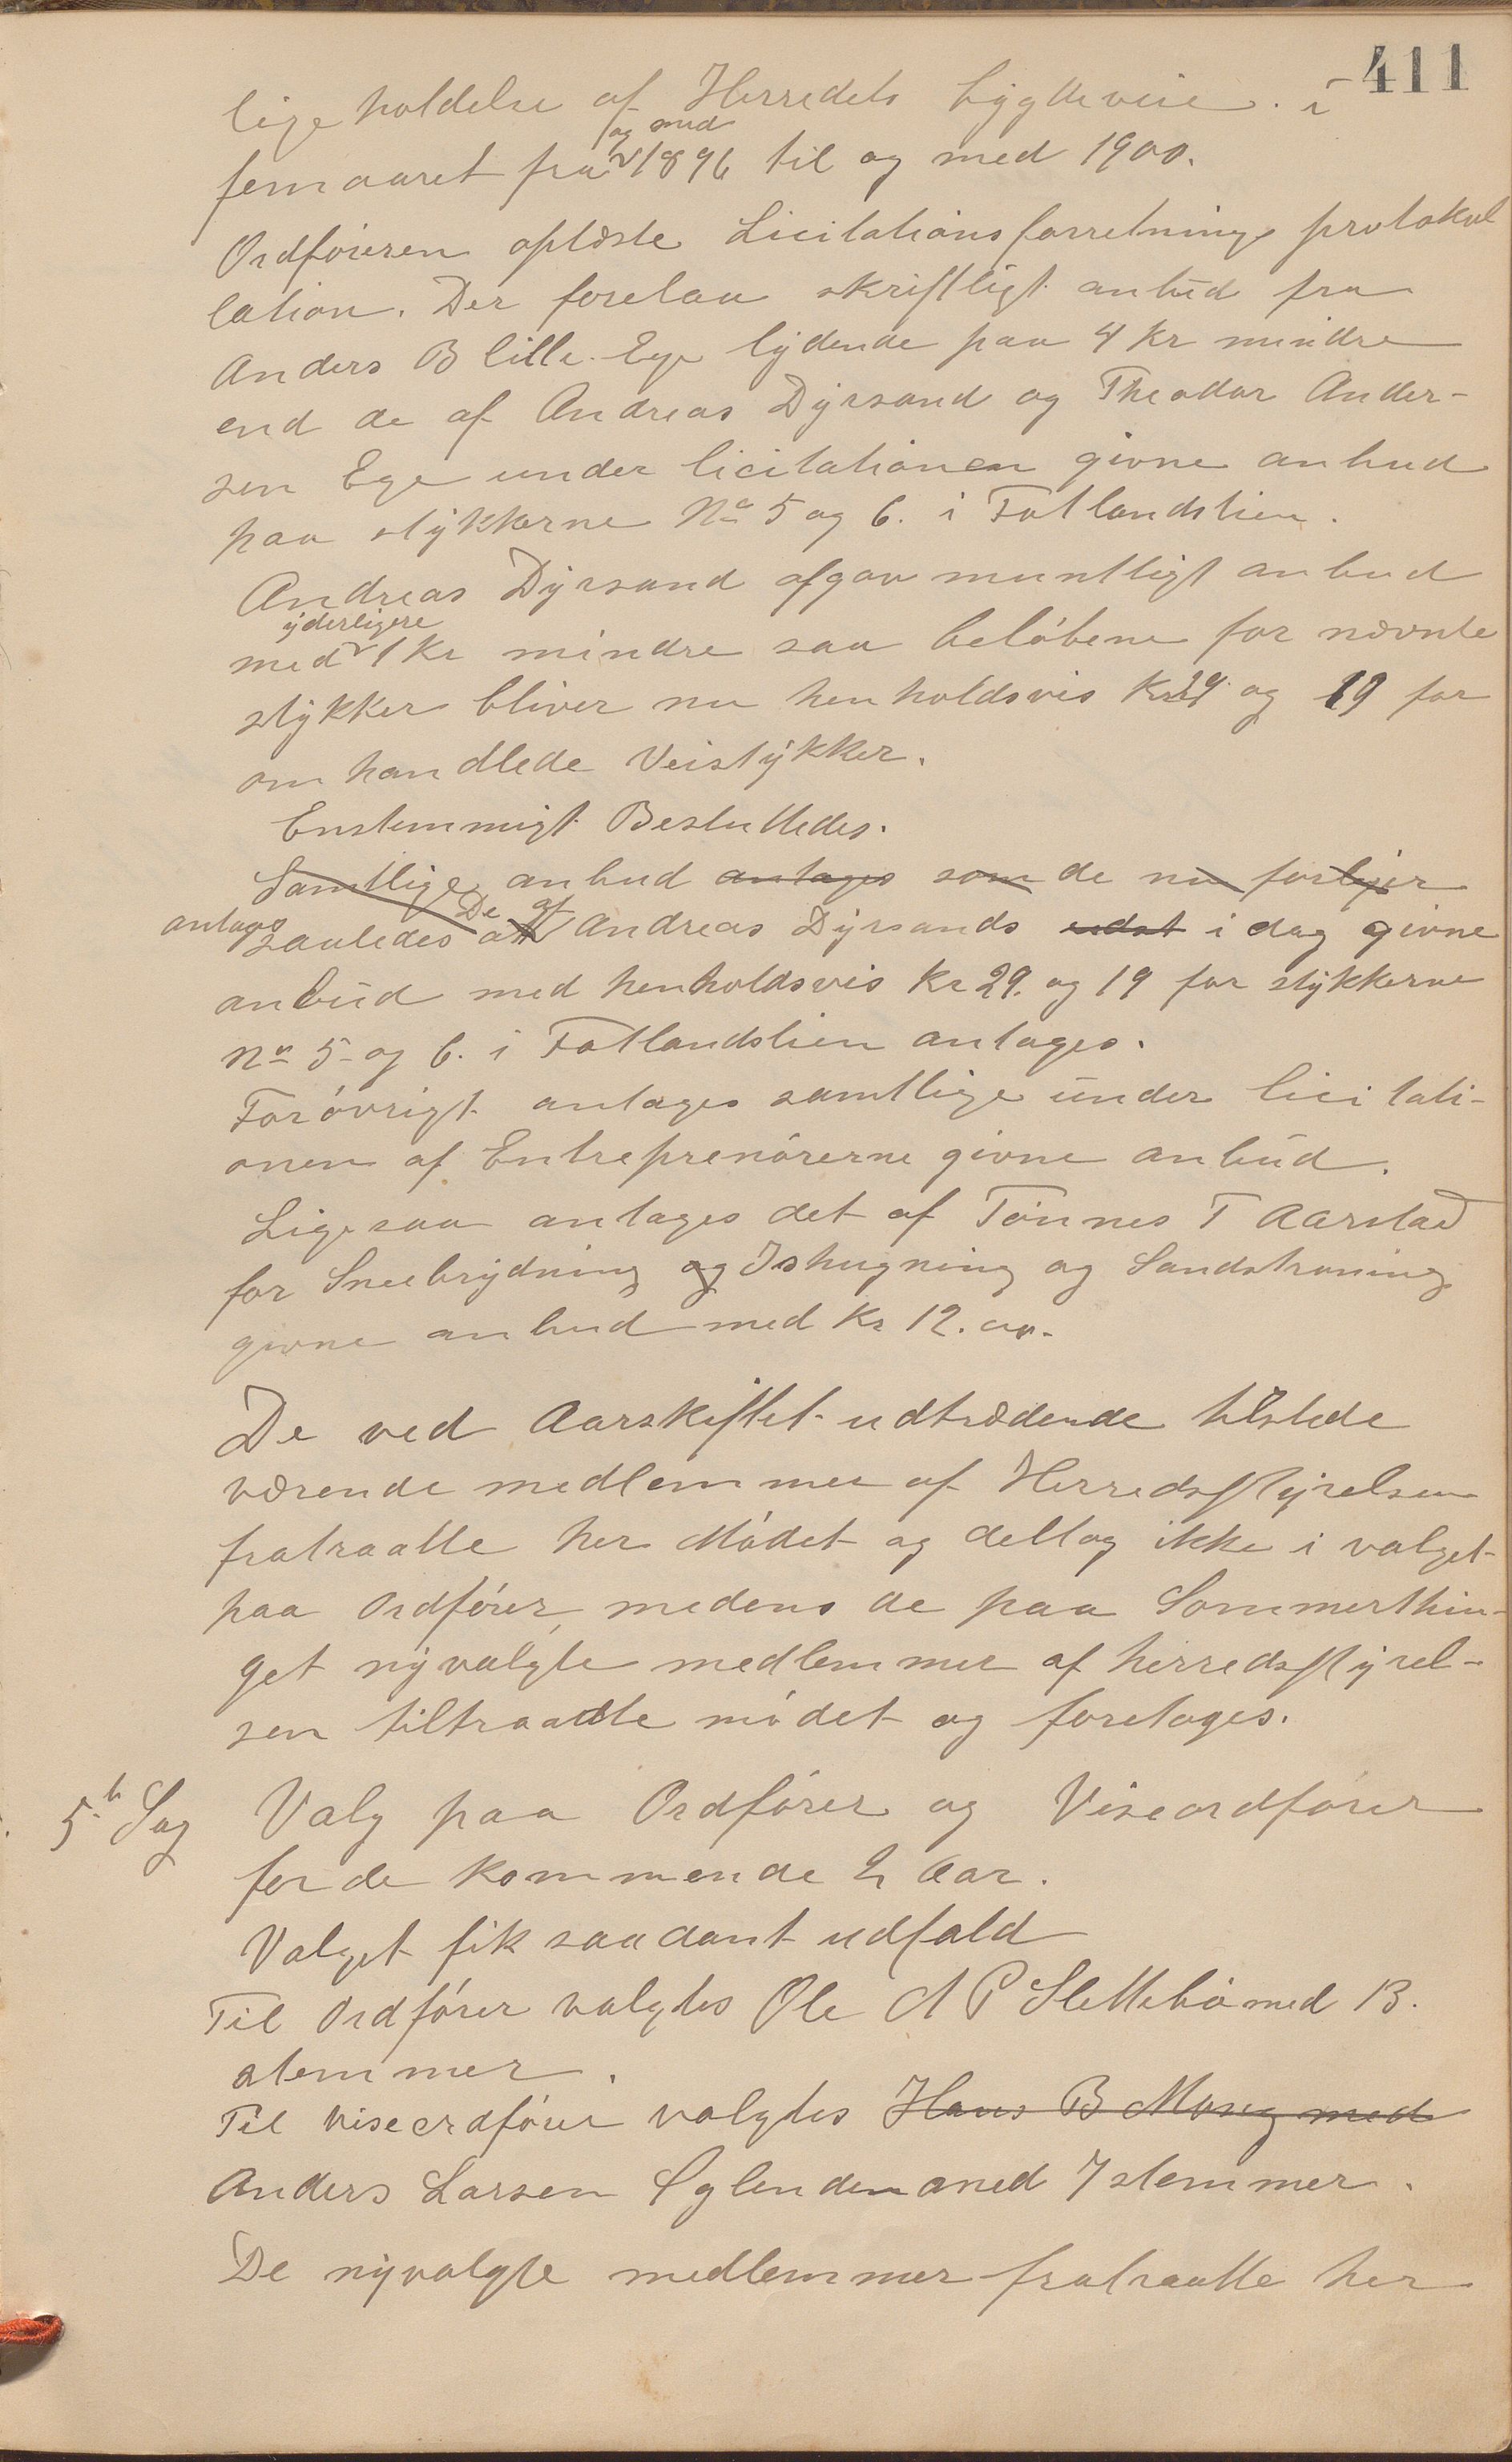 411
ligeholdelse af Herredets bygdeveie. i
femaaret fra og med 1896 til og med 1900.
Ordføreren oplæste Licitationsforretnings protokol
lation. Der forelaa skriftligt anbud fra
Anders B lille Ege lydende paa 4 kr mindre
end de af Andreas Dyrsand og Theodor Ander-
sen Ege under licitationen givne anbud
paa stykkerne No 5 og 6. i Fotlandslien.
Andreas Dyrsand afgav muntligt anbud
med yderligere 1 kr mindre saa beløbene for nævnte
stykker bliver nu henholdsvis Kr 29. og 19 for
omhandlede Veistykker.
Enstemmigt Besluttedes.
Samtlige anbud antages som de nu forliger
antages saaledes at De af Andreas Dyrsands i dag givne
anbud med henholdsvis Kr 29. og 19 for stykkerne
No 5 og 6. i Fotlandslien antages.
Forøvrigt antages samtlige under licitati-
onen af Entreprenørerne givne anbud.
Ligesaa antages det af Tønnes T Aarstad
for Sneebrydning og Ishugning og Sandstrøning
givne anbud med Kr 12.00.
De ved Aarskiftet udtrædende tilstede
værende medlemmer af Herredsstyrelsen
fratraatte her Mødet og deltog ikke i valget
paa Ordfører, medens de paa Sommerthin-
get nyvalgte medlemmer af herredsstyrel-
sen tiltraadte mødet og foretoges.
5. Sag Valg paa Ordfører og Viseordfører
for de kommende 2 Aar.
Valget fik saadant udfald
Til Ordfører valgtes Ole A P Slettebø med 13.
stemmer.
Til viseordfører valgtes Hans B Mosig med
Anders Larsen Eglenden med 7 stemmer.
De nyvalgte medlemmer fratraatte her